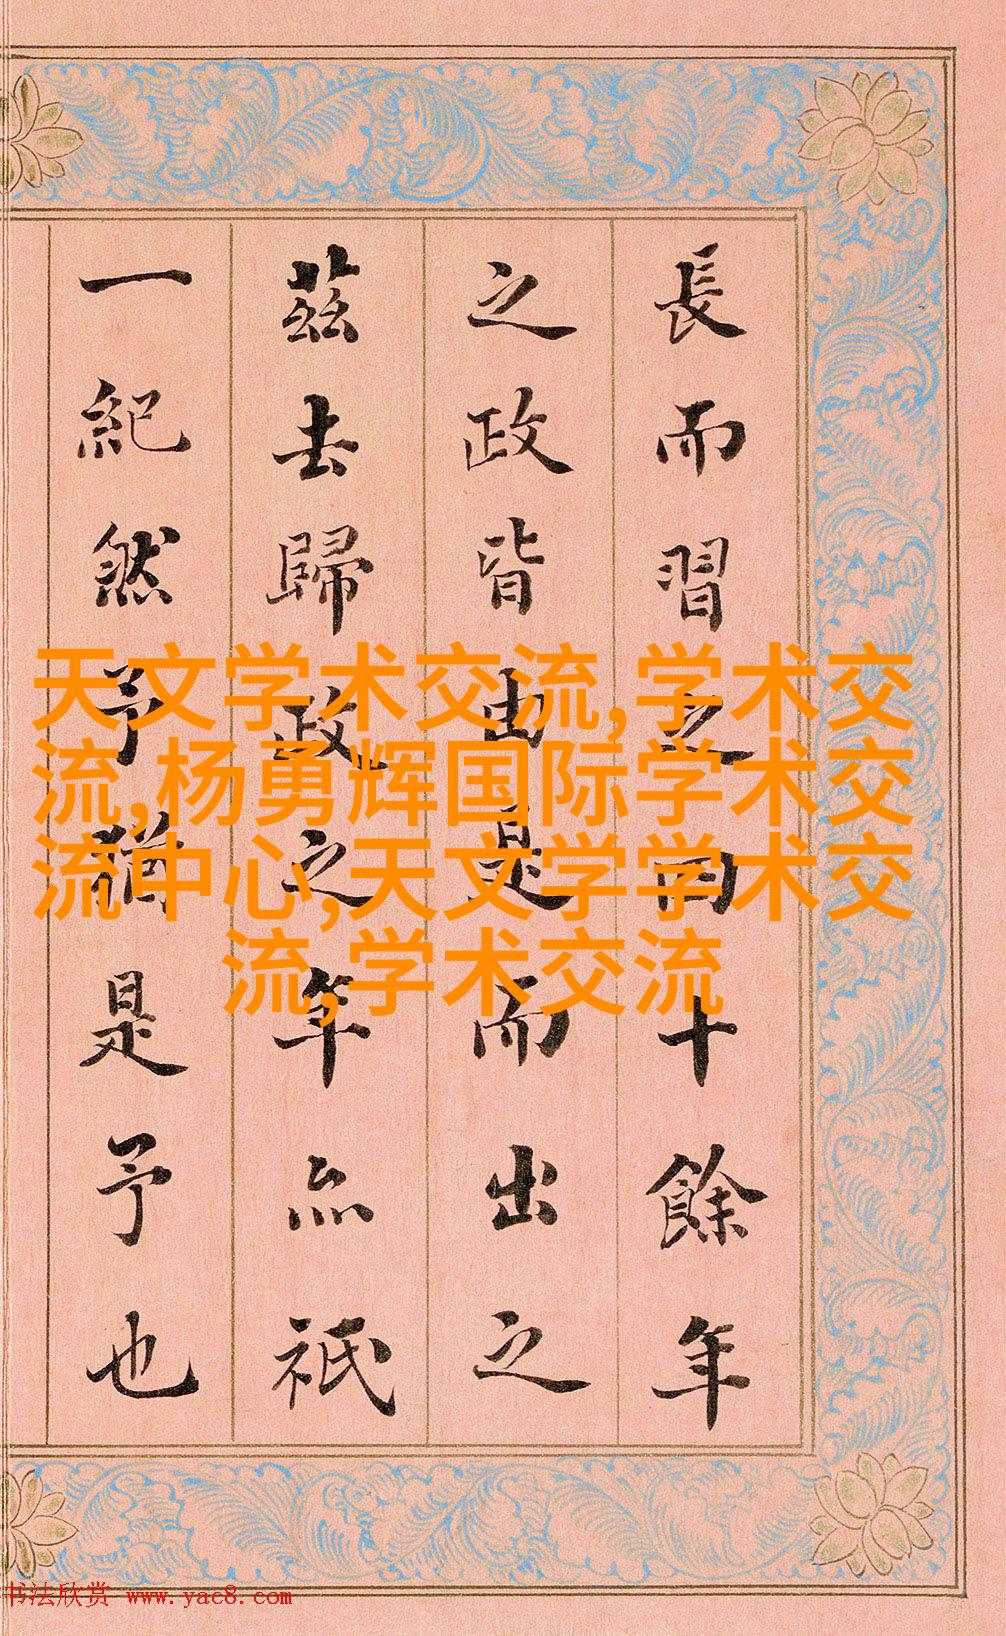 長而習之四十餘年
之政皆由是而出之
茲去歸政之年亦祇
一紀然予猶是予也
天文学术交流,学术交
流,杨勇辉国际学术交
流中心,天文学学术交
流,学术交流
书法欣赏 www.yac8.com